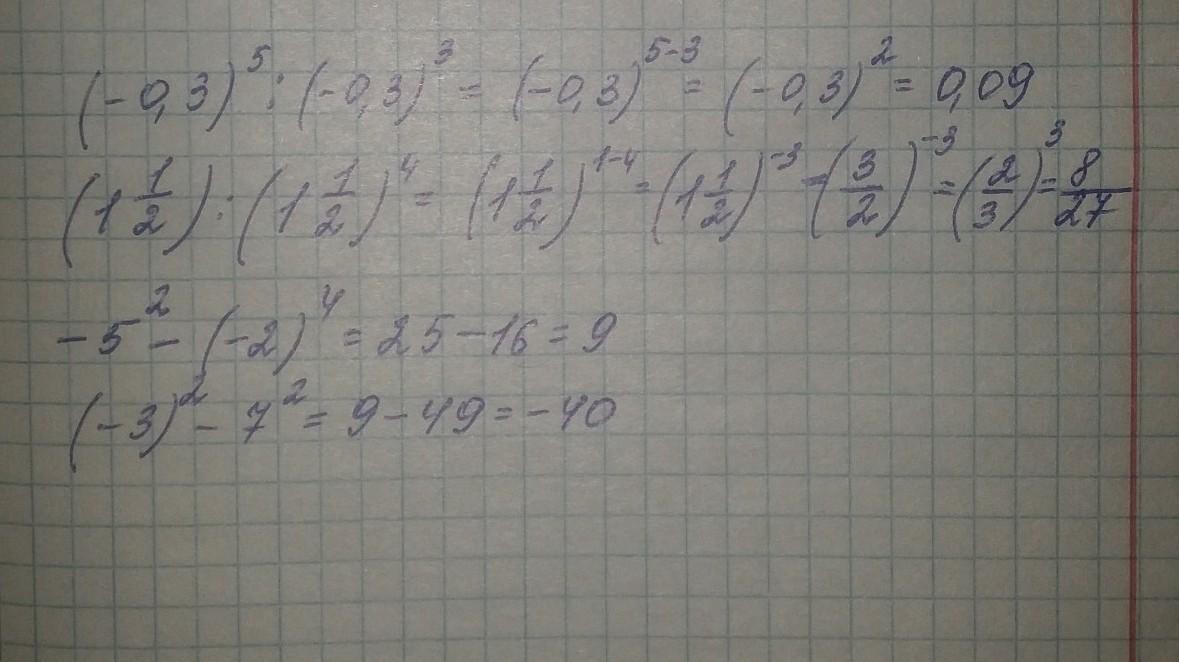 (-0,3)⁵ : (-0,3)³ = (-0,3)⁵⁻³ = (-0,3)² = 0,09
(1 1/2) : (1 1/2)⁴ = (1 1/2)¹⁻⁴ = (1 1/2)⁻³ = (3/2)⁻³ = (2/3)³ = 8/27
-5² - (-2)⁴ = 25 - 16 = 9
(-3)² - 7² = 9 - 49 = -40